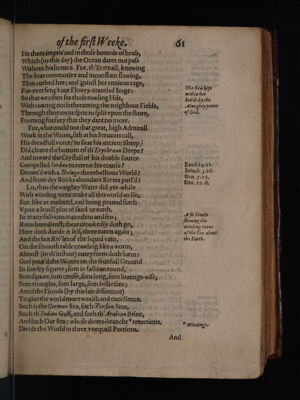 of the first Weeke. 61
He them impris'ned in those bounds of brass,
Which (to this day) the Ocean dares not pass
Without his licence. For, th'Eternall, knowing
The Seas commotive and inconstant flowing,
Thus curbed her; and 'gainst her envious rage,
For-ever fenç't our Flowry-mantled Stage:
So that we often see those rowling Hils,
With roaring noise threatning the neighbour Fields,
Through their owne spite to split upon the shore,
Foaming for fury that they dare no more.
For, what could not that great, high Admirall
Work in the Waves, sith at his Servants call,
His dreadfull voice (to save his ancient Sheep)
Did cleave the bottom of th'Erythræan Deep?
And toward the Crystall of his double source
Compelled Iordan to retreat his course?
Drown'd with a Deluge the rebellious World?
And from dry Rocks abundant Rivers purl'd?
Lo, thus the waighty Water did yer-while
With winding turns make all this world an Ile.
For, like as molten Lead, being poured forth
Upon a levell plot of sand or earth,
In many fashions mazeth to and fro;
Runs heer direct, there crookedly doth go,
Heer doth divide it self, there meets again;
And the hot Riv'let of the liquid vain,
On the smooth table crawling like a worm,
Almost (in th'instant) every form doth form:
God pour'd the Waters on the fruitfull Ground
In sundry figures; som in fashion round,
Som square, som crosse, som long, som lozenge-wise,
Som triangles, som large, som lesser size;
Amid the Floods (by this fair difference)
To give the world more wealth and excellence.
Such is the German Sea, such Persian Sine,
Such th'Indian Gulf, and such th'Arabian Brine,
And such Our Sea: whose divers-brancht *retortions,
Divide the World in three vnequall Portions.
And
The Sea kept
within her
bounds by the
Almighty power
of God.
Exod. 14.21.
Iosuah. 3.16.
Gen. 7.21.
Exo. 17.6.
A fit Simile
shewing the
winding turns
of the Sea about
the Earth.
* Windings.